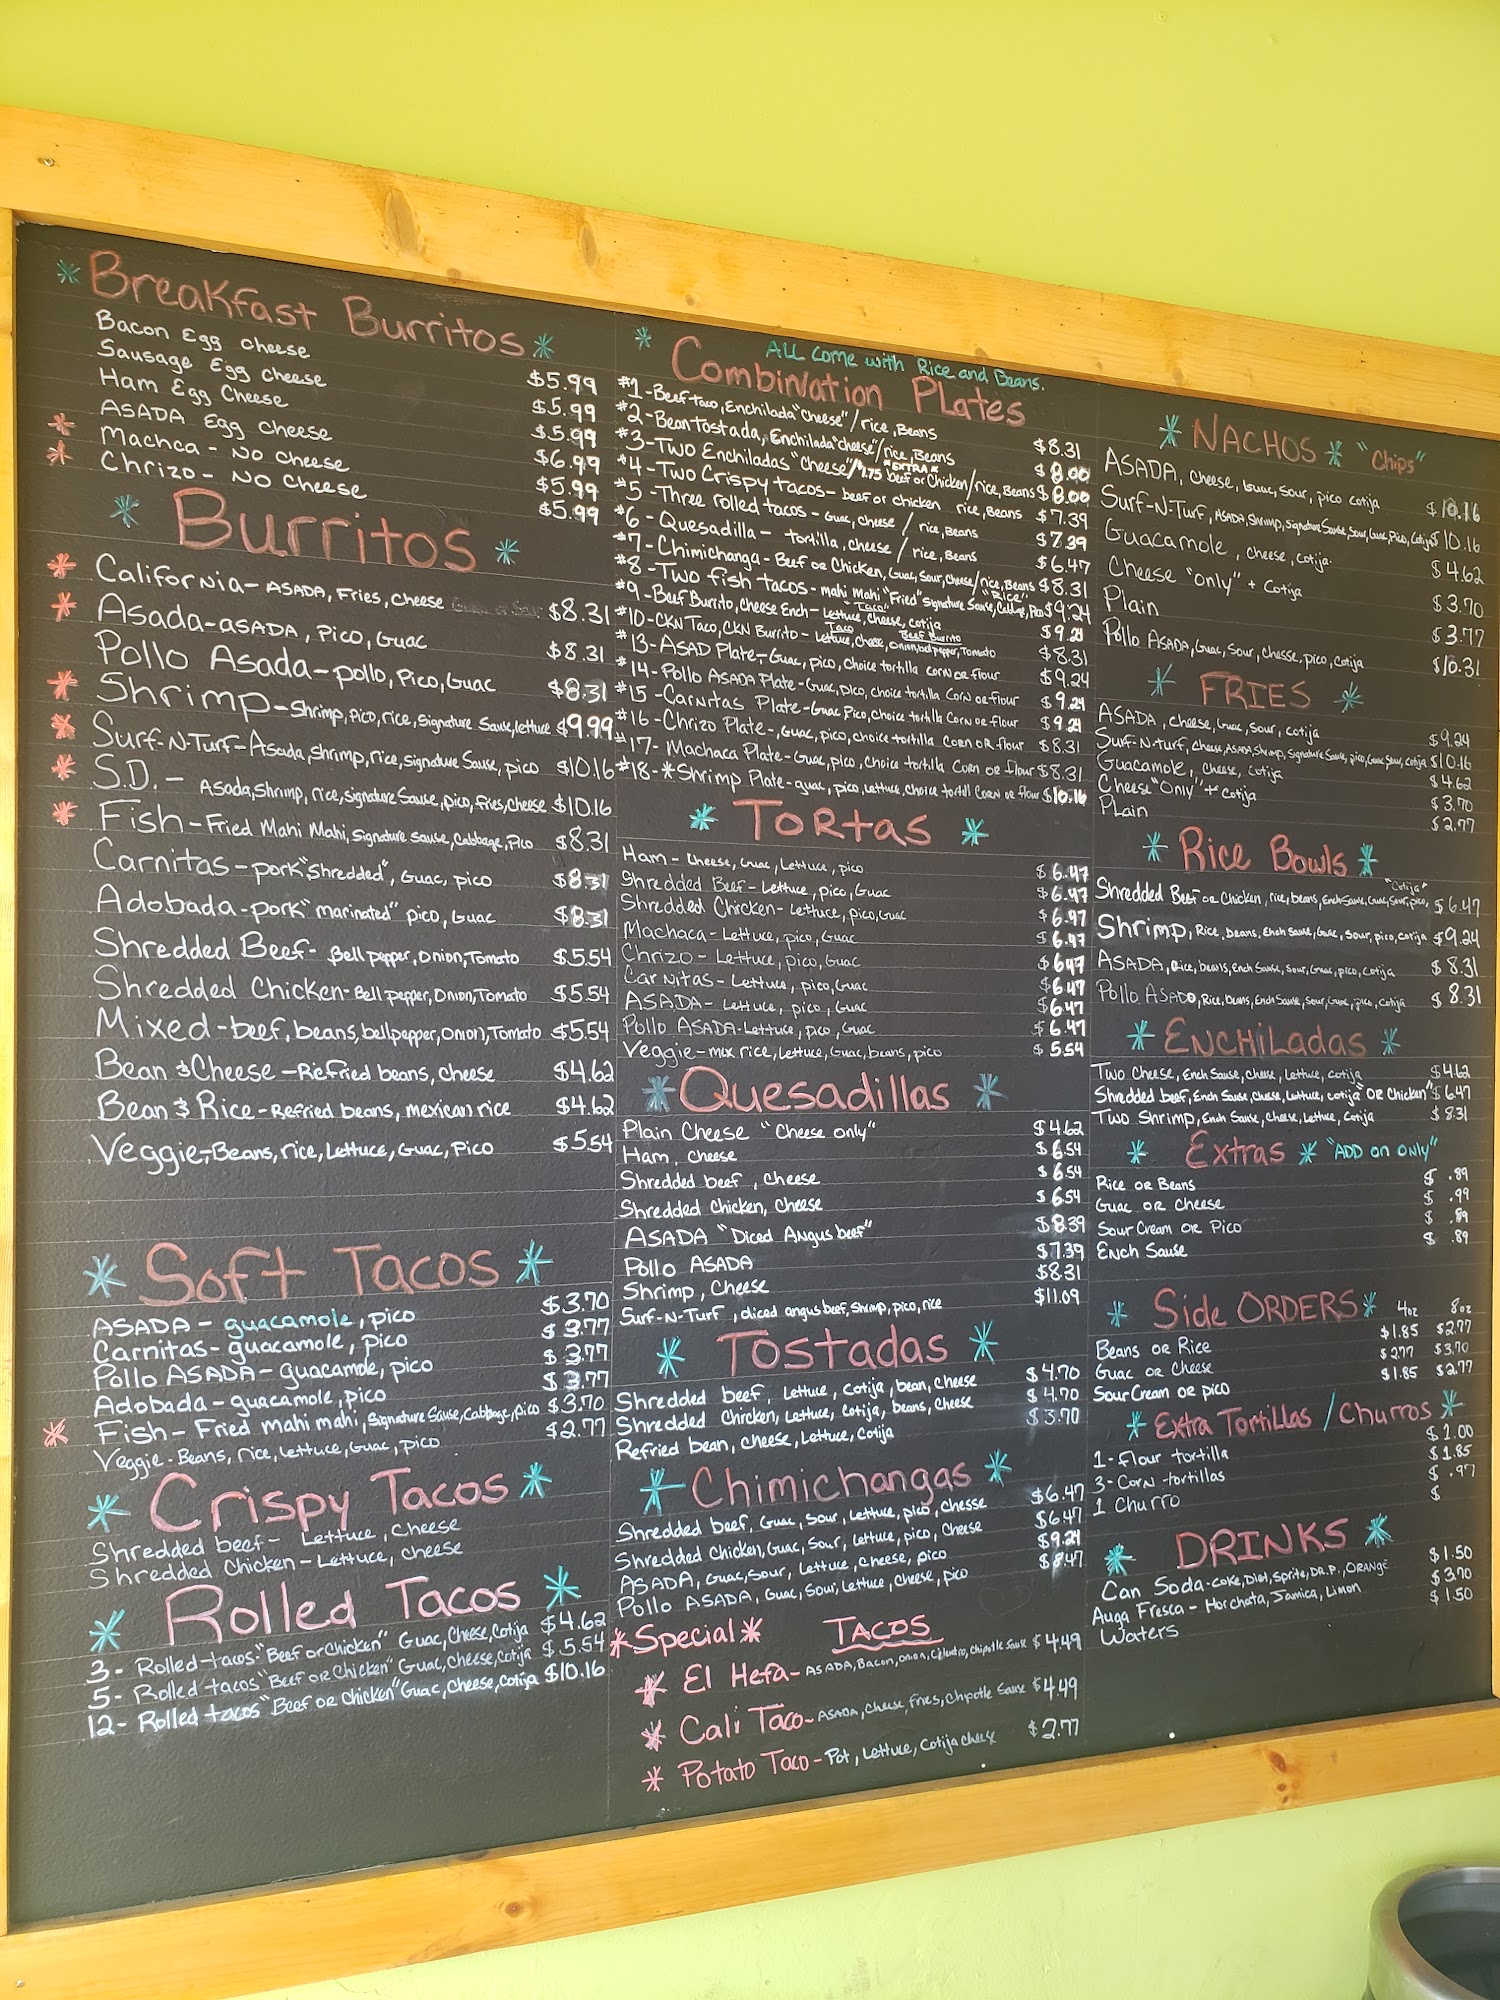 * Breakfast Burritos *
Bacon Egg Cheese $5.99
Sausage Egg Cheese $5.99
Ham Egg Cheese $5.99
ASADA Egg Cheese $6.99
* Machca - NO Cheese $5.99
* Chrizo - NO Cheese $5.99
* Burritos *
* California - ASADA, Fries, Cheese $8.31
* Asada - ASADA, Pico, Guac $8.31
Pollo Asada - pollo, Pico, Guac $8.31
* Shrimp - Shrimp, Pico, rice, Signature Sause, lettuce $9.99
* Surf-N-Turf - Asada, shrimp, rice, signature Sause, pico $10.16
* S.D. - Asada, Shrimp, rice, Signature Sause, pico, fries, cheese $10.16
* Fish - Fried Mahi Mahi, signature sause, Cabbage, Pico $8.31
Carnitas - pork "Shredded", Guac, pico $8.31
Adobada - pork "marinated" pico, Guac $8.31
Shredded Beef - Bell pepper, Onion, Tomato $5.54
Shredded Chicken - Bell pepper, Onion, Tomato $5.54
Mixed - beef, beans, bellpepper, Onion, Tomato $5.54
Bean & Cheese - Refried beans, cheese $4.62
Bean & Rice - Refried beans, mexican rice $4.62
Veggie - Beans, rice, Lettuce, Guac, Pico $5.54
* Soft Tacos *
ASADA - guacamole, pico $3.70
Carnitas - guacamole, pico $3.77
Pollo ASADA - guacamole, pico $3.77
Adobada - guacamole, pico $3.77
* Fish - Fried mahi mahi, Signature Sause, Cabbage, Pico $3.70
Veggie - Beans, rice, Lettuce, Guac, pico $2.77
* Crispy Tacos *
Shredded beef - Lettuce, Cheese
Shredded Chicken - Lettuce, cheese
* Rolled Tacos *
3 - Rolled tacos - "Beef or Chicken" Guac, Cheese, Cotija $4.62
5 - Rolled tacos "Beef or Chicken" Guac, Cheese, Cotija $5.54
12 - Rolled tacos "Beef or Chicken" Guac, Cheese, Cotija $10.16
ALL Come with Rice and Beans.
* Combination Plates
#1 - Beef taco, Enchilada "cheese" / rice, Beans $8.31
#2 - Bean tostada, Enchilada "cheese" / rice, Beans $8.00
*EXTRA*
#3 - Two Enchiladas "Cheese" / 1.75 beef or Chicken / rice, Beans $8.00
#4 - Two Crispy tacos - beef or chicken rice, Beans $7.39
#5 - Three rolled tacos - Guac, cheese / rice, Beans $7.39
#6 - Quesadilla - tortilla, cheese / rice, Beans $6.47
#7 - Chimichanga - Beef or Chicken, Guac, Sour, Cheese / rice, Beans $8.31
#8 - Two fish tacos - mahi Mahi "Fried" Signature Sause, Cabbage, Pico $9.24
#9 - Beef Burrito, Cheese Ench - Lettuce, cheese, cotija $9.24
#10 - CKN Taco, CKN Burrito - Lettuce, Cheese, Onion, bell pepper, Tomato $8.31
#13 - ASAD Plate - Guac, pico, choice tortilla corn or flour $9.24
#14 - Pollo ASADA Plate - Guac, pico, choice tortilla Corn or flour $9.24
#15 - Carnitas Plate - Guac, Pico, choice tortilla Corn or flour $9.24
#16 - Chrizo Plate -, Guac, pico, choice tortilla Corn or flour $8.31
#17 - Machaca Plate - Guac, pico, choice tortilla Corn or flour $8.31
#18 - * Shrimp Plate - guac, pico, Lettuce, choice tortill Corn or flour $10.16
* Tortas *
Ham - Cheese, Guac, Lettuce, pico $6.47
Shredded Beef - Lettuce, pico, Guac $6.47
Shredded Chicken - Lettuce, pico, Guac $6.97
Machaca - Lettuce, pico, Guac $6.47
Chrizo - Lettuce, pico, Guac $6.47
Carnitas - Lettuce, pico, Guac $6.47
ASADA - Lettuce, pico, Guac $6.47
Pollo ASADA - Lettuce, pico, Guac $6.47
Veggie - mex rice, Lettuce, Guac, beans, pico $5.54
* Quesadillas *
Plain Cheese "Cheese only" $4.62
Ham, cheese $6.54
Shredded beef, cheese $6.54
Shredded Chicken, Cheese $6.54
ASADA "Diced Angus beef" $8.39
Pollo ASADA $7.39
Shrimp, Cheese $8.31
Surf-N-Turf, diced angus beef, Shrimp, pico, rice $11.09
* Tostadas *
Shredded beef, Lettuce, Cotija, bean, cheese $4.70
Shredded Chicken, Lettuce, Cotija, beans, cheese $4.70
Refried bean, cheese, Lettuce, Cotija $3.70
* Chimichangas *
Shredded beef, Guac, Sour, Lettuce, pico, chesse $6.47
Shredded Chicken, Guac, Sour, Lettuce, pico, Cheese $6.47
ASADA, Guac, Sour, Lettuce, cheese, pico $9.24
Pollo ASADA, Guac, Sour, Lettuce, cheese, pico $8.47
*Special* TACOS
* El Hefa - ASADA, Bacon, Onion, Cilantro, Chipotle Sause $4.49
* Cali Taco - ASADA, Cheese, fries, Chipotle Sause $4.49
* Potato Taco - Pot, Lettuce, Cotija cheese $2.77
* NACHOS * "Chips"
ASADA, Cheese, Guac, sour, pico cotija $10.16
Surf-N-Turf, ASADA, Shrimp, Signature Sause, Sour, Guac, Pico, Cotija $10.16
Guacamole, Cheese, cotija. $4.62
Cheese "only" + Cotija $3.70
Plain $3.77
Pollo ASADA, Guac, Sour, chesse, pico, cotija $10.31
* FRIES *
ASADA, cheese, Guac, sour, cotija $9.24
Surf-N-turf, Cheese, ASADA, Shrimp, Signature Sause, pico, Guac, Sour, cotija $10.16
Guacamole, Cheese, Cotija $4.62
Cheese "Only" + cotija $3.70
PLain $2.77
* Rice Bowls *
"Cotija"
Shredded Beef or Chicken, rice, beans, Ench Sause, Guac, Sour, pico, $6.47
Shrimp, Rice, beans, Ench Sause, Guac, Sour, pico, cotija $9.24
ASADA, Rice, beans, Ench Sause, Sour, Guac, pico, cotija $8.31
Pollo ASADO, Rice, beans, Ench Sause, Sour, Guac, pico, cotija $8.31
* ENCHILadas *
Two Cheese, Ench Sause, Cheese, Lettuce, cotija $4.62
Shredded beef, Ench Sause, Cheese, Lettuce, cotija "OR Chicken" $6.47
Two Shrimp, Ench Sause, Cheese, Lettuce, Cotija $8.31
* Extras * "ADD on ONLY"
Rice or Beans $ .89
Guac or Cheese $ .99
Sour Cream or Pico $ .89
Ench Sause $ .89
* Side ORDERS * 4oz 8oz
Beans or Rice $1.85 $2.77
Guac or Cheese $2.77 $3.70
Sour Cream or pico $1.85 $2.77
* Extra Tortillas / Churros *
1 - flour tortilla $1.00
3 - Corn - tortillas $1.85
1 Churro $ .97
$
* DRINKS *
Can Soda - Coke, Diet, Sprite, DR.P., ORANGE $1.50
Auga Fresca - Horchata, Jamica, Limon $3.70
Waters $1.50